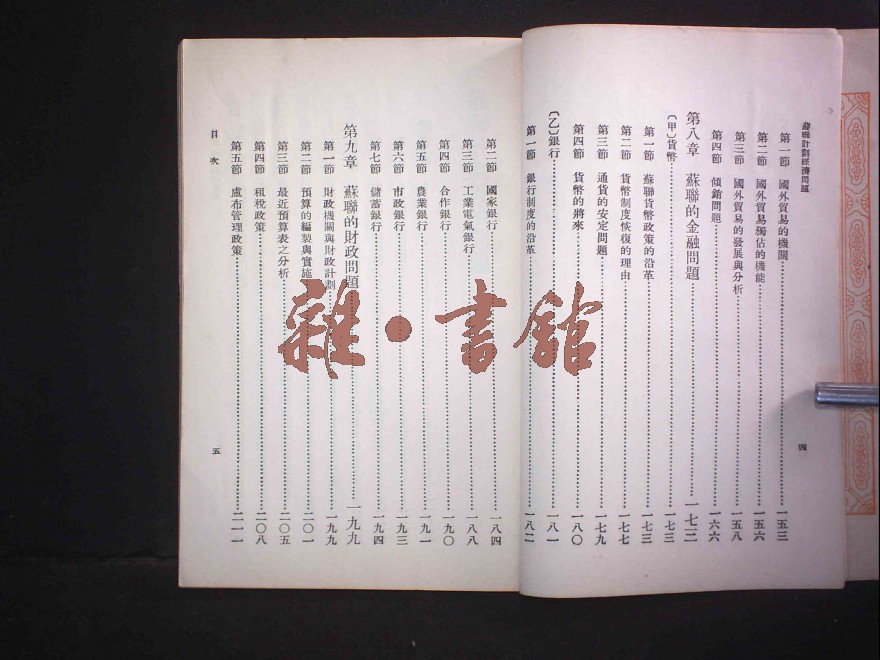 蘇聯計劃經濟問題
第一節 國外貿易的機關……一五三
第二節 國外貿易獨佔的機能……一五六
第三節 國外貿易的發展與分析……一五八
第四節 傾銷問題……一六六
第八章 蘇聯的金融問題……一七三
〔甲〕貨幣……一七三
第一節 蘇聯貨幣政策的沿革……一七三
第二節 貨幣制度恢復的理由……一七七
第三節 通貨的安定問題……一七九
第四節 貨幣的將來……一八〇
〔乙〕銀行……一八一
第一節 銀行制度的沿革……一八二
四
第二節 國家銀行……一八四
第三節 工業電氣銀行……一八八
第四節 合作銀行……一九〇
第五節 農業銀行……一九一
第六節 市政銀行……一九三
第七節 儲蓄銀行……一九四
第九章 蘇聯的財政問題……一九九
第一節 財政機關與財政計劃……一九九
第二節 預算的編製與實施……二〇一
第三節 最近預算表之分析……二〇五
第四節 租稅政策……二〇八
第五節 盧布管理政策……二一一
目次
五
雜·書館